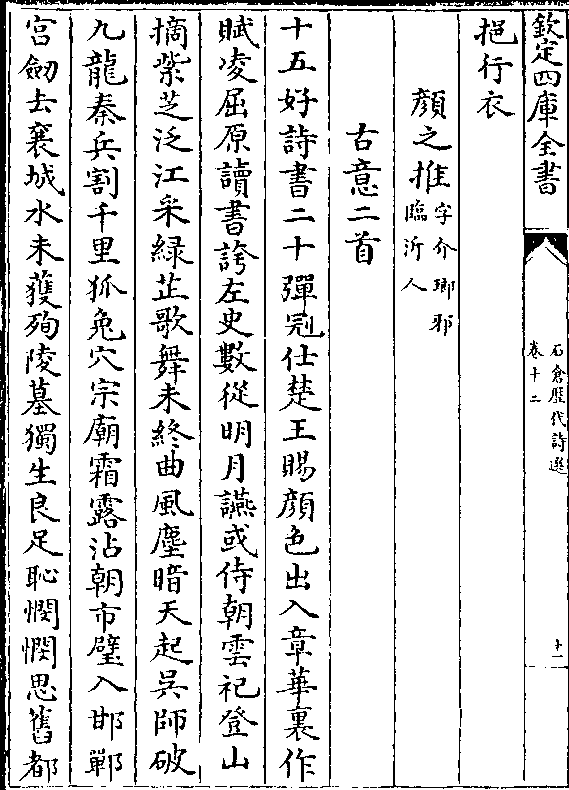 欽定四庫全書
石倉歷代詩選
卷十二
十一
挹行衣
顔之推
字介瑯邪
臨沂人
古意二首
十五好詩書二十彈冠仕楚王賜顔色出入章華裏作
賦凌屈原讀書誇左史數從明月讌或侍朝雲祀登山
摘紫芝泛江采緑芷歌舞未終曲風塵暗天起吳師破
九龍秦兵割千里狐兔穴宗廟霜露沾朝市璧入邯鄲
宫劒去襄城水未獲殉陵墓獨生良足恥憫憫思舊都